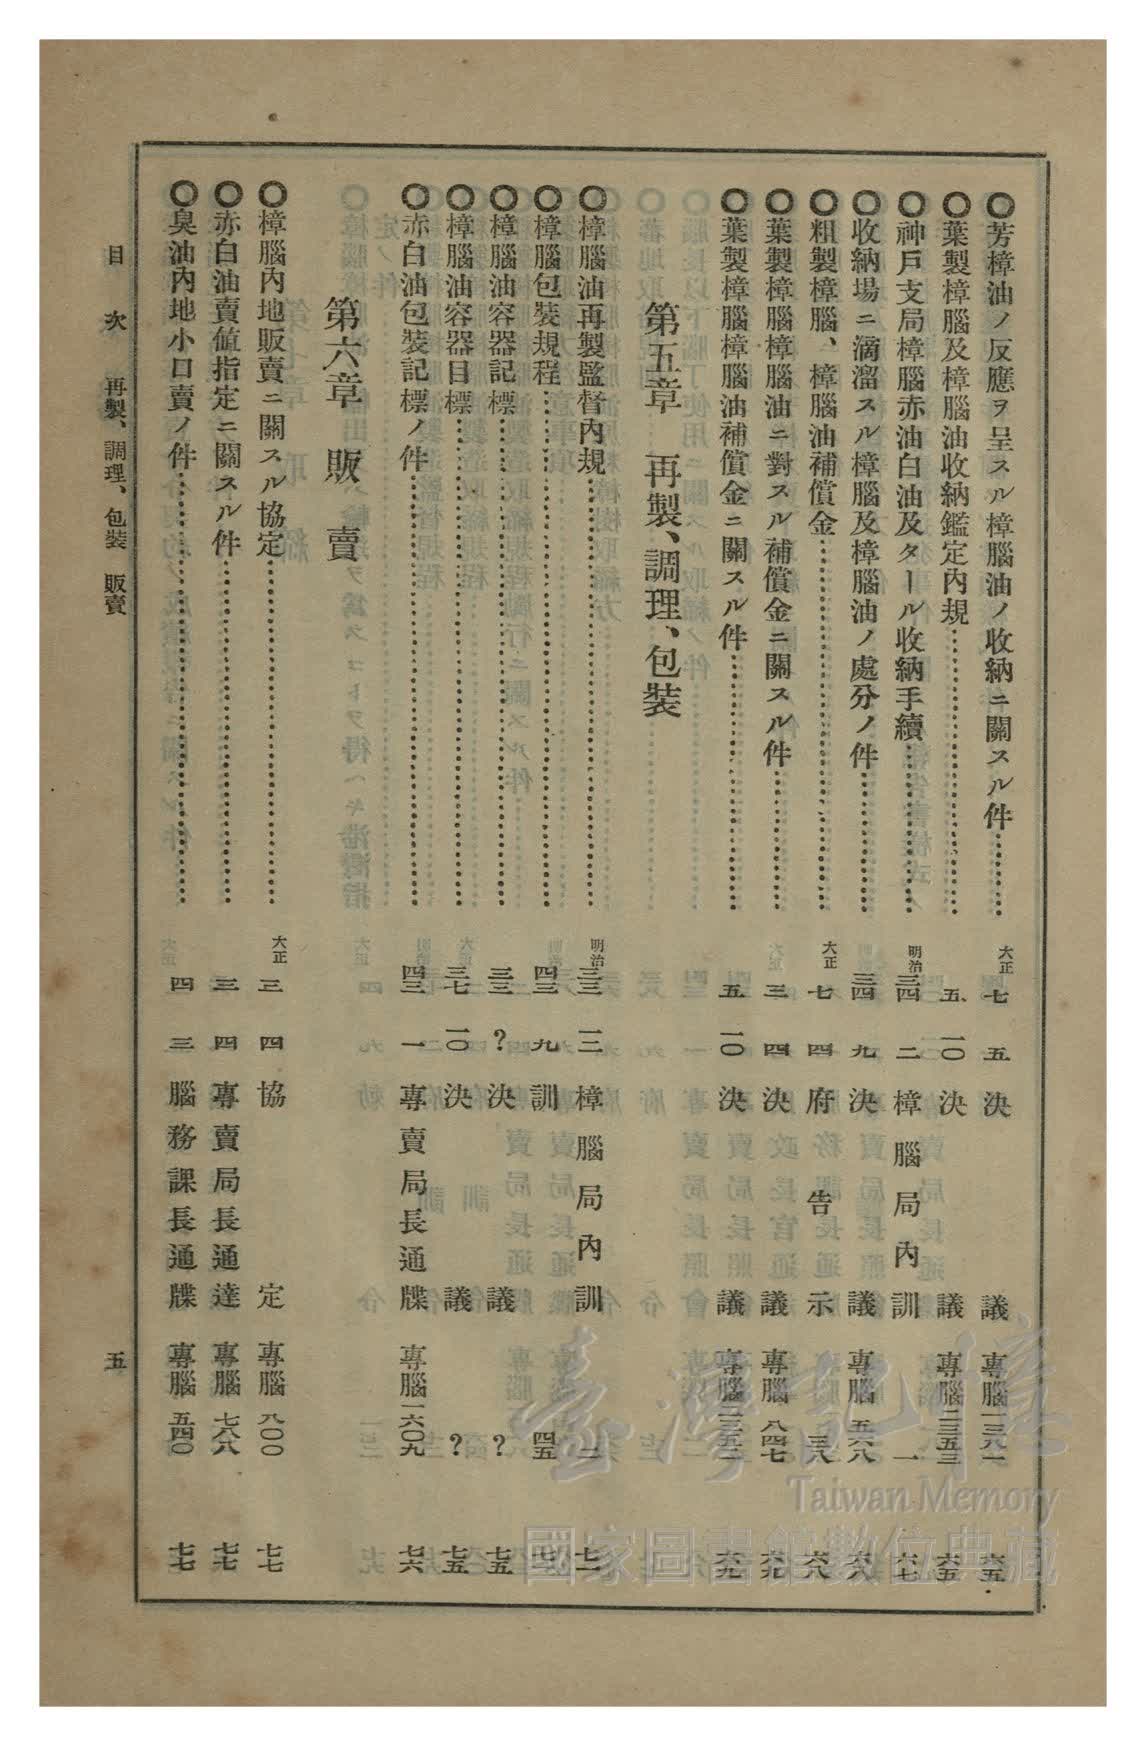 ◯芳樟油ノ反應ヲ呈スル樟腦油ノ收納ニ關スル件……大正七 五 決議 專腦一三八一 六五
◯葉製樟腦及樟腦油收納鑑定內規……五 一〇 決議 專腦二三五三 六五
◯神戶支局樟腦赤油白油及タール收納手續……明治三四 二 樟腦局內訓 一 六七
◯收納場ニ滴溜スル樟腦及樟腦油ノ處分ノ件……三四 九 決議 專腦五六八 六八
◯粗製樟腦、樟腦油補償金……大正七 四 府告示 三八 六八
◯葉製樟腦樟腦油ニ對スル補償金ニ關スル件……三 四 決議 專腦八四七 六九
◯葉製樟腦樟腦油補償金ニ關スル件……五 一〇 決議 專腦二三五三 六九
第五章 再製、調理、包裝
◯樟腦油再製監督內規……明治三三 三 樟腦局內訓 二 七一
◯樟腦包裝規程……四三 九 訓 四五 七二
◯樟腦油容器記標……三三 ? 決議 ? 七五
◯樟腦油容器目標……三七 一〇 決議 ? 七五
◯赤白油包裝記標ノ件……四三 一 專賣局長通牒 專腦一六〇九 七六
第六章 販賣
◯樟腦內地販賣ニ關スル協定……大正三 四 協定 專腦八〇〇 七七
◯赤白油賣値指定ニ關スル件……三 四 專賣局長通達 專腦七八八 七七
◯臭油內地小口賣ノ件……四 三 腦務課長通牒 專腦五四〇 七七
目次 再製、調理、包裝 販賣 五
臺灣記憶
Taiwan Memory
國家圖書館數位典藏